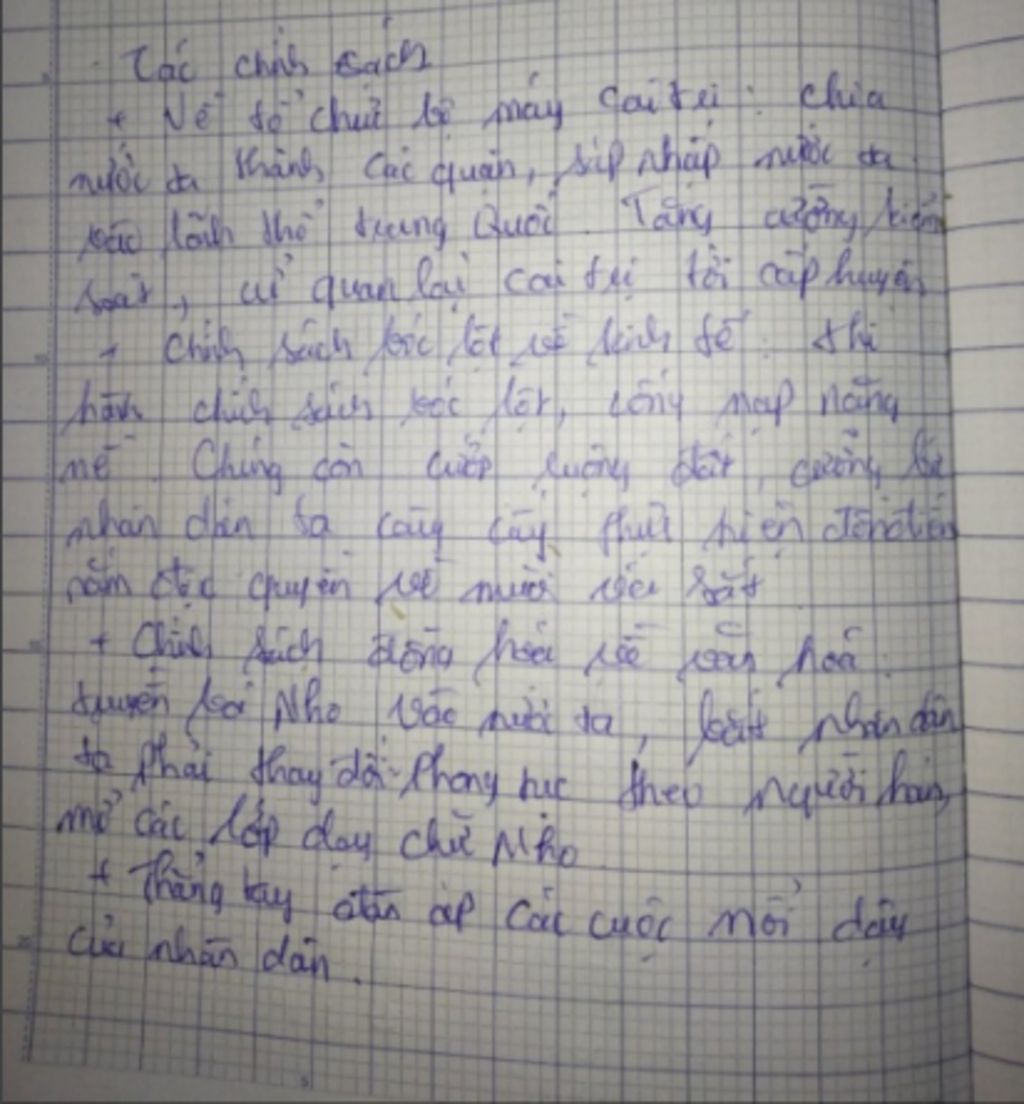 Các chính sách
+ Về tổ chức bộ máy cai trị: chia
nước ta thành các quận, sáp nhập nước ta
vào lãnh thổ Trung Quốc. Tăng cường kiểm
soát, cử quan lại cai trị tới cấp huyện
+ Chính sách bóc lột về kinh tế: thi
hành chính sách bóc lột, cống nạp nặng
nề. Chúng còn cướp ruộng đất, cưỡng bức
nhân dân ta cày cấy thực hiện đồn điền
nắm độc quyền về muối và sắt
+ Chính sách đồng hoá về văn hoá:
truyền bá Nho vào nước ta, bắt nhân dân
ta phải thay đổi phong tục theo người hán,
mở các lớp dạy chữ Nho
+ Thẳng tay đàn áp các cuộc nổi dậy
của nhân dân.